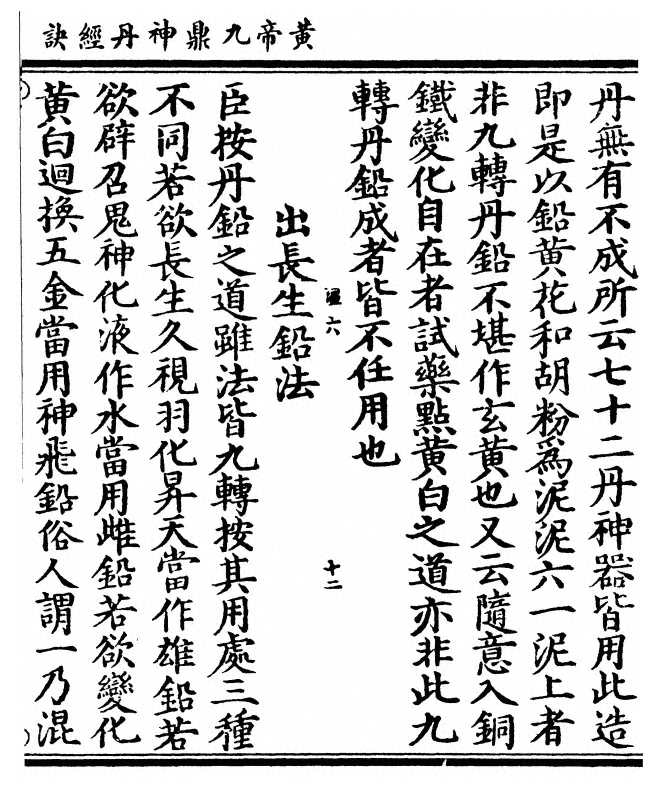 黃帝九鼎神丹經訣
丹無有不成所云七十二丹神器皆用此造
即是以鉛黃花和胡粉爲泥泥六一泥上者
非九轉丹鉛不堪作玄黃也又云隨意入銅
鐵變化自在者試藥點黃白之道亦非此九
轉丹鉛成者皆不任用也
溫六
十二
出長生鉛法
臣按丹鉛之道雖法皆九轉按其用處三種
不同若欲長生久視羽化昇天當作雄鉛若
欲辟召鬼神化液作水當用雌鉛若欲變化
黃白迴換五金當用神飛鉛俗人謂一乃混